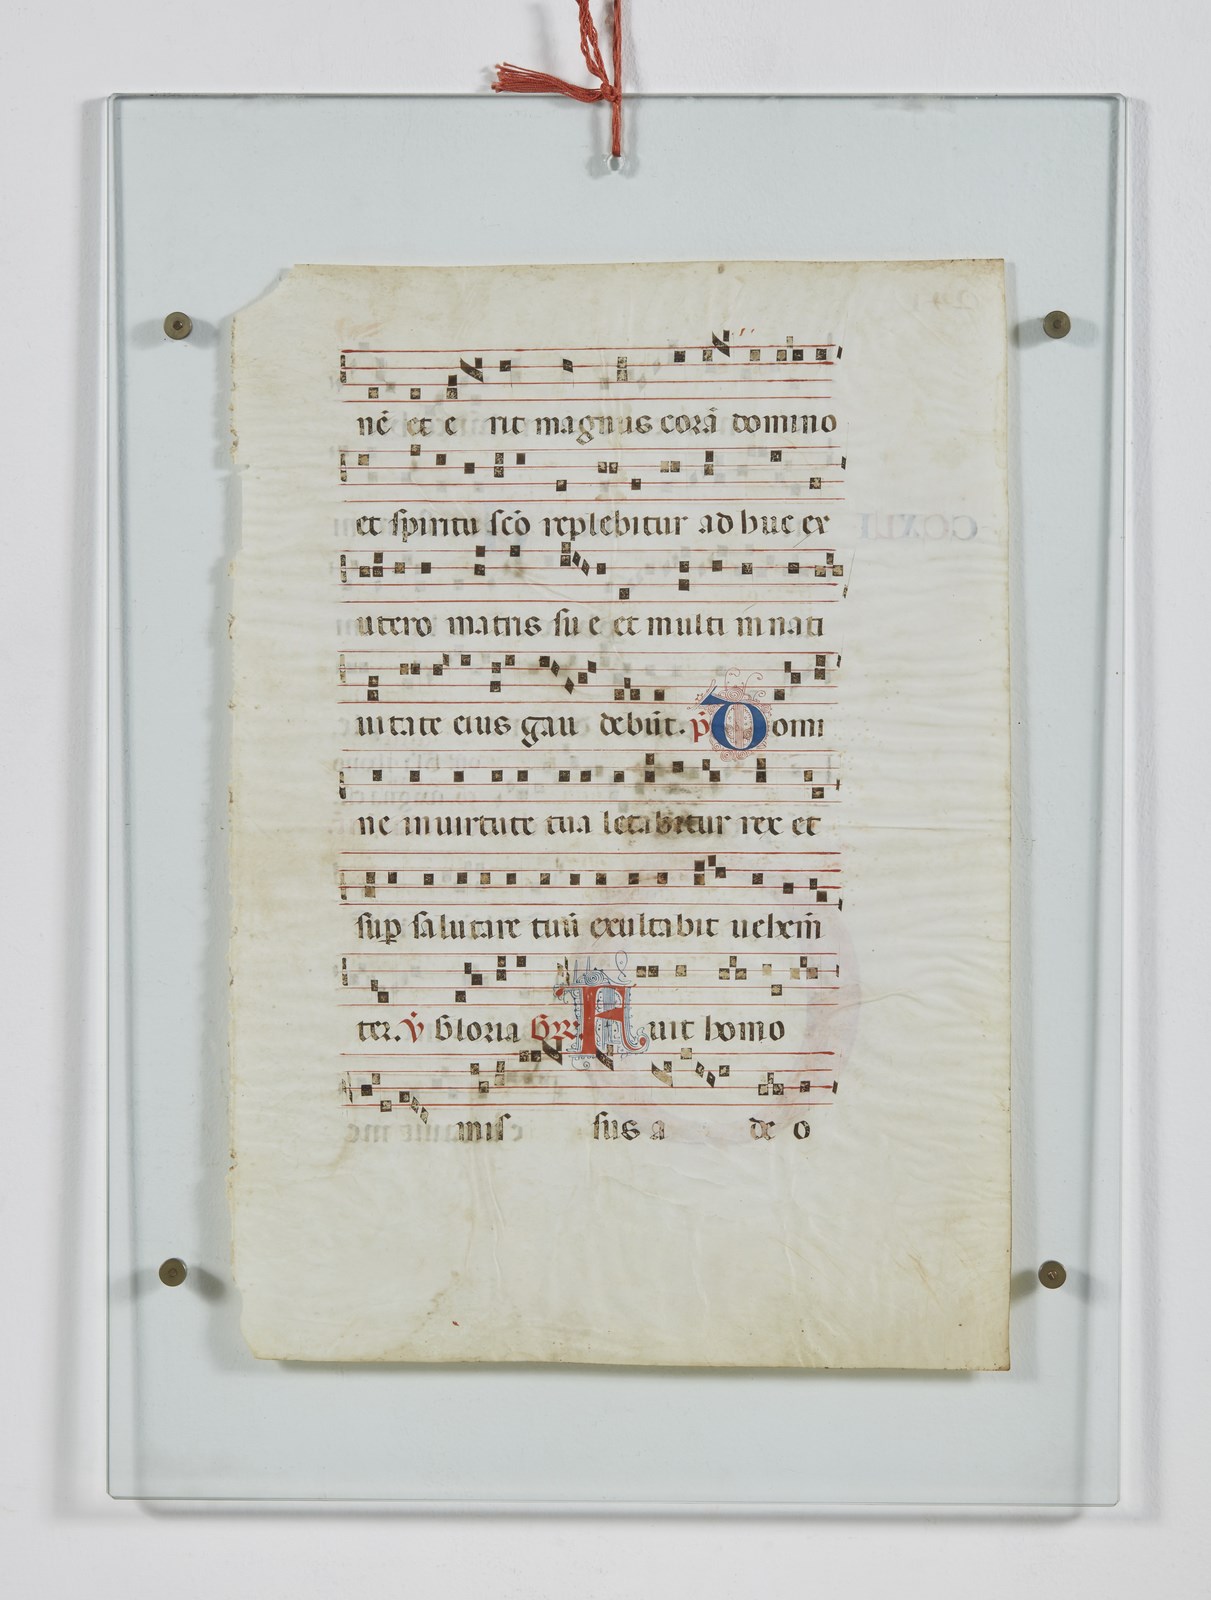 nē et e rit magnus corā domino
et spiritu scō replebitur ad huc ex
utero matris su e et multi in nati
uitate eius gau debūt. p̄ Domi
ne in uirtute tua letabitur rex et
sup salutare tuū exultabit uehem̄
ter. v̄ Gloria Gr̄. Fuit homo
mis sus a de o